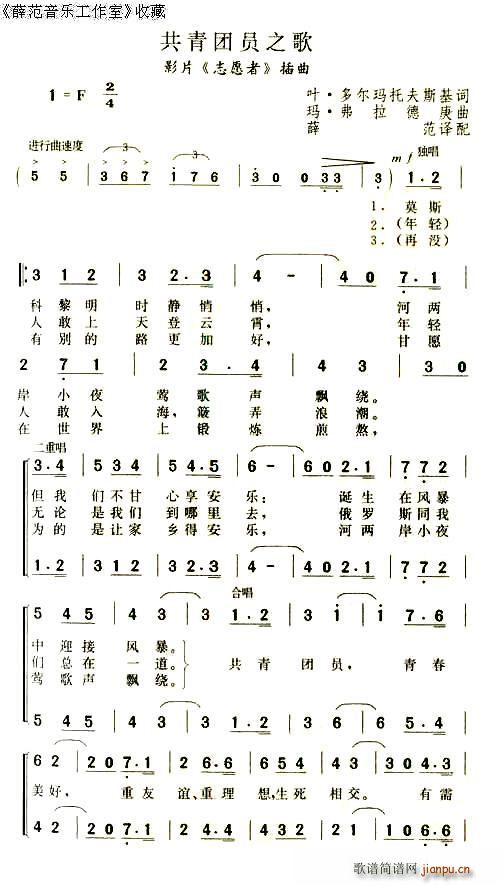 《薛范音乐工作室》收藏
共青团员之歌
影片《志愿者》插曲
1=F 2/4
叶·多尔玛托夫斯基词
玛·弗拉德庚曲
薛 范译配
进行曲速度 mf 独唱
( 5 5 | 3 6 7 1 7 6 | 3 0 0 3 3 | 3 ) 1·2 |
1. 莫斯
2. (年轻)
3. (再没)
3 1 2 | 3 2·3 | 4 - | 4 0 7·1 |
科黎明时静悄悄, 河两
人敢上天登云霄, 年轻
有别的路更加好, 甘愿
2 7 1 | 2 3·4 | 4 3 | 3 0
岸小夜莺歌声飘绕。
人敢入海,簸弄浪潮。
在世界上锻炼煎熬,
二重唱
3·4 | 5 3 4 | 5 4·5 | 6 - | 6 0 2·1 | 7 7 2 |
但我们不甘心享安乐; 诞生在风暴
无论是我们到哪里去, 俄罗斯同我
为的是让家乡得安乐, 河两岸小夜
1·2 | 3 1 2 | 3 2·3 | 4 - | 4 0 2·1 | 7 7 2 |
合唱
5 4 5 | 4 3 | 3 1·2 | 3 i | i 7·6 |
中迎接风暴。
们总在一道。 共青团员, 青春
莺歌声飘绕。
5 4 5 | 4 3 | 3 1·2 | 3 1 | 6 5·4 |
6 2 | 2 0 7·1 | 2 6·6 | 6 5 4 | 4 3 | 3 0 4·3 |
美好, 重友谊、重理想,生死相交。 有需
4 2 | 2 0 7·1 | 2 0 | 0 | 2 1 | 1 0 6·6 |
歌谱简谱网
jianpu.cn